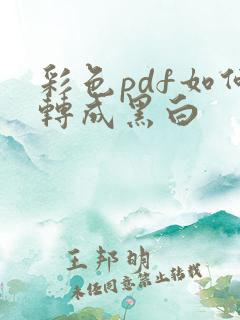 彩色pdf如何
轉成黑白
王邦明
未任同意禁止转载